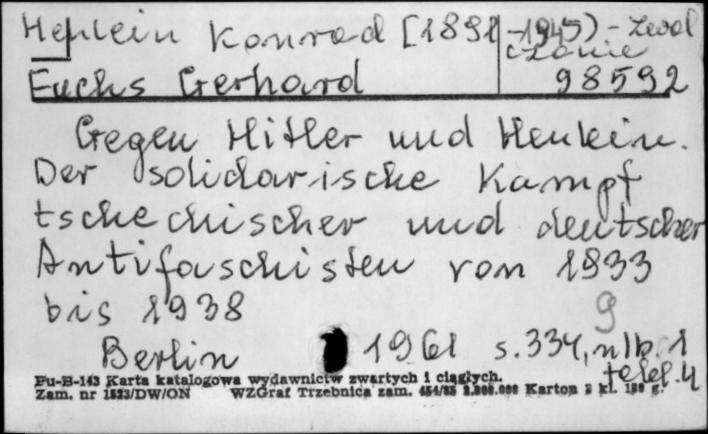 Henlein Konrad [1898-1945) - zwal
czanie
Fuchs Gerhard 98592
Gegen Hitler und Henlein.
Der solidarische Kampf
tschechischer und deutscher
Antifaschisten von 1933
bis 1938
9
Berlin 1961 s. 334, nlb. 1
Pu-B-143 Karta katalogowa wydawnictw zwartych i ciągłych.
Zam. nr 1523/DW/ON WZGraf Trzebnica zam. 454/85 2.000.000 Karton 2 kl. 180 g.